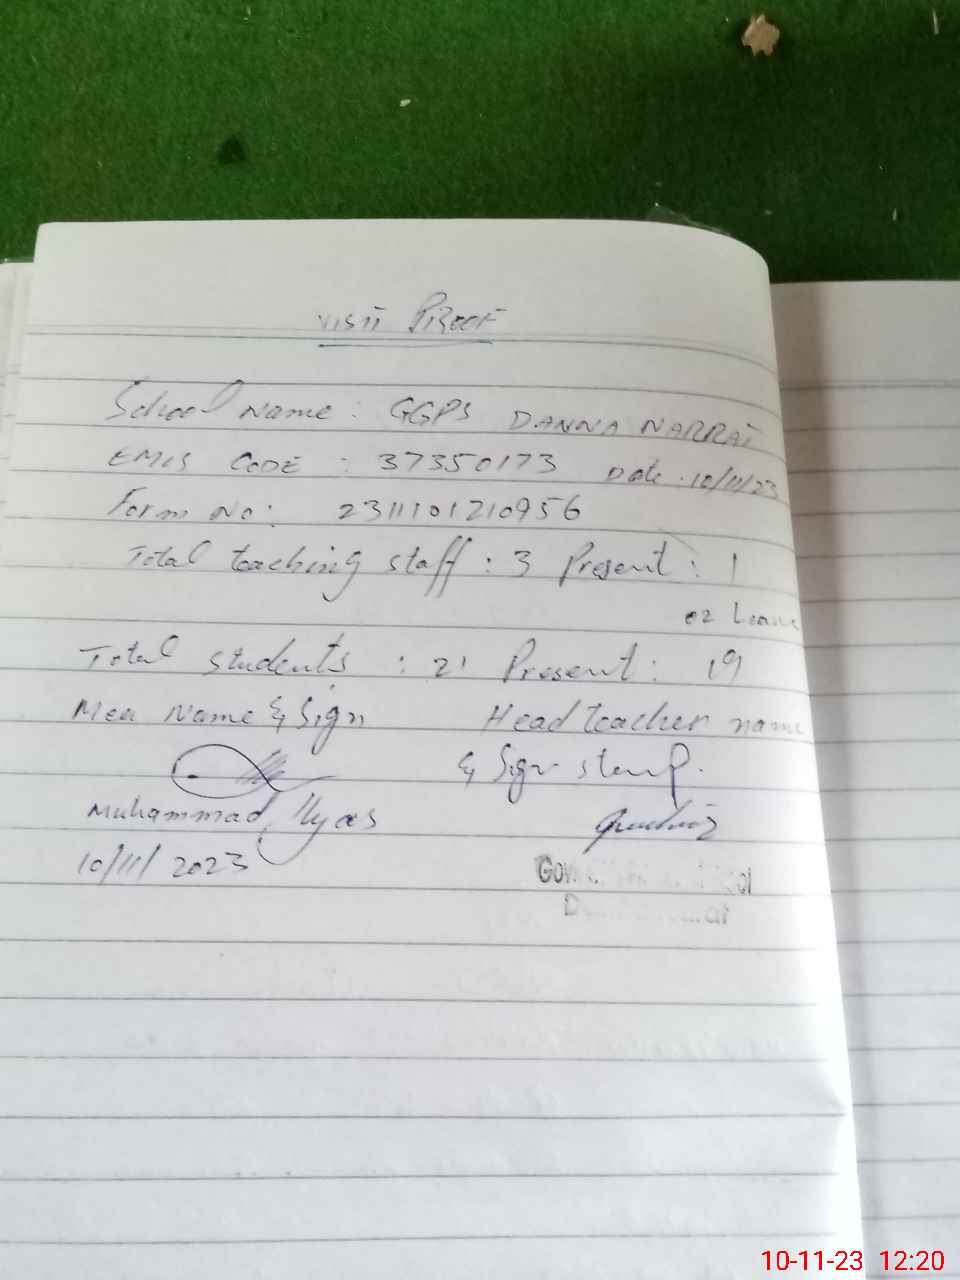 VISIT PROOF
School Name : GGPS DANNA NARRAT
EMIS CODE : 37350173 Date . 10/11/23
Form No: 2311101210956
Total teaching staff : 3 Present : 1
02 Leave
Total students : 21 Present : 19
Mea Name & Sign Head teacher name
& Sign stamp.
Muhammad Ilyas
10/11/2023
10-11-23 12:20